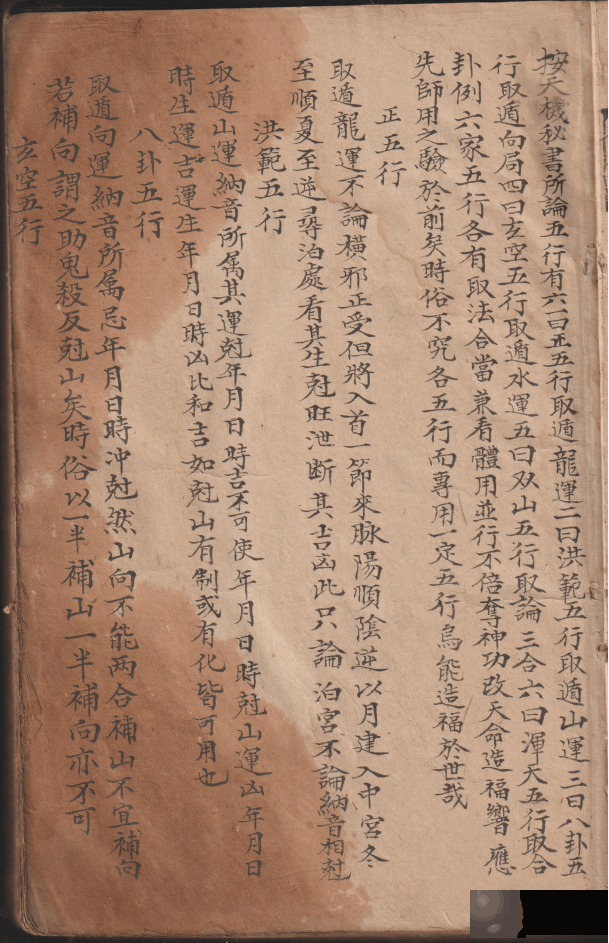 按天機秘書所論五行有六一曰正五行取遁龍運二曰洪範五行取遁山運三曰八卦五
行取遁向局四曰玄空五行取遁水運五曰双山五行取論三合六曰渾天五行取合
卦例六家五行各有取法合當兼看體用並行不倍奪神功改天命造福響應
先師用之驗於前矣時俗不究各五行而專用一定五行烏能造福於世哉
正五行
取遁龍運不論橫邪正受但將入首一節來脉陽順陰逆以月建入中宮冬
至順夏至逆尋泊處看其生尅旺泄断其吉凶此只論泊宮不論納音相尅
洪範五行
取遁山運納音所属其運尅年月日時吉不可使年月日時尅山運凶年月日
時生運吉運生年月日時凶比和吉如尅山有制或有化皆可用也
八卦五行
取遁向運納音所属忌年月日時冲尅然山向不能两合補山不宜補向
若補向謂之助鬼殺反尅山矣時俗以一半補山一半補向亦不可
玄空五行